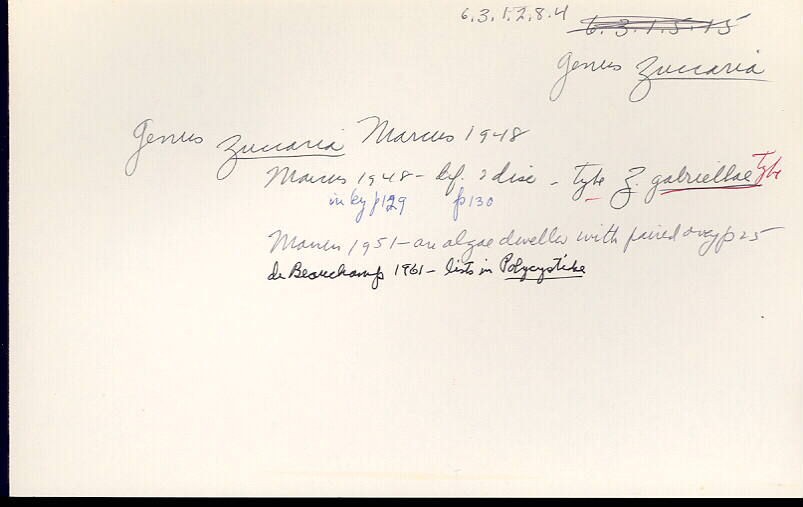 6.3.1.2.8.4 6.3.1.5.15
Genus Zuccaria
Genus Zuccaria Marcus 1948
Marcus 1948 - def. & disc - type Z. gabriellae type
in key p129 p130
Marcus 1951 - an algae dweller with paired ovary p25
de Beauchamp 1961 - lists in Polycystidae